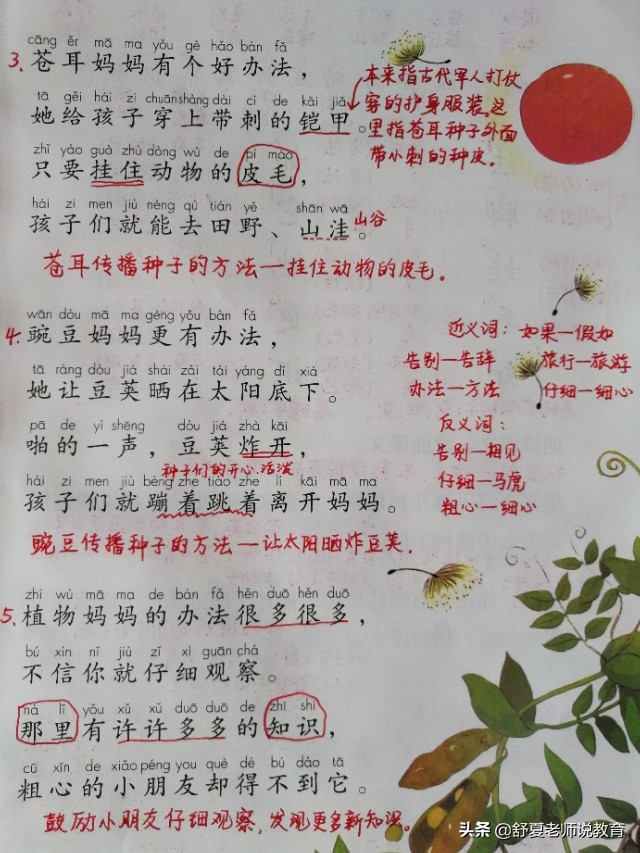 cāng ěr mā ma yǒu gè hǎo bàn fǎ
3. 苍耳妈妈有个好办法，
tā gěi hái zi chuān shàng dài cì de kǎi jiǎ
她给孩子穿上带刺的铠甲。
本来指古代军人打仗
穿的护身服装。这
里指苍耳种子外面
带小刺的种皮。
zhǐ yào guà zhù dòng wù de pí máo
只要挂住动物的皮毛，
hái zi men jiù néng qù tián yě shān wā
孩子们就能去田野、山洼。山谷
苍耳传播种子的方法—挂住动物的皮毛。
wān dòu mā ma gèng yǒu bàn fǎ
4. 豌豆妈妈更有办法，
tā ràng dòu jiá shài zài tài yáng dǐ xià
她让豆荚晒在太阳底下。
pā de yì shēng dòu jiá zhà kāi
啪的一声，豆荚炸开，
种子们的开心、活泼
hái zi men jiù bèng zhe tiào zhe lí kāi mā ma
孩子们就蹦着跳着离开妈妈。
豌豆传播种子的方法—让太阳晒炸豆荚。
近义词：如果—假如
告别—告辞 旅行—旅游
办法—方法 仔细—细心
反义词：
告别—相见
仔细—马虎
粗心—细心
zhí wù mā ma de bàn fǎ hěn duō hěn duō
5. 植物妈妈的办法很多很多，
bú xìn nǐ jiù zǐ xì guān chá
不信你就仔细观察。
nà lǐ yǒu xǔ xǔ duō duō de zhī shi
那里有许许多多的知识，
cū xīn de xiǎo péng you què dé bú dào tā
粗心的小朋友却得不到它。
鼓励小朋友仔细观察，发现更多新知识。
头条 @舒夏老师说教育